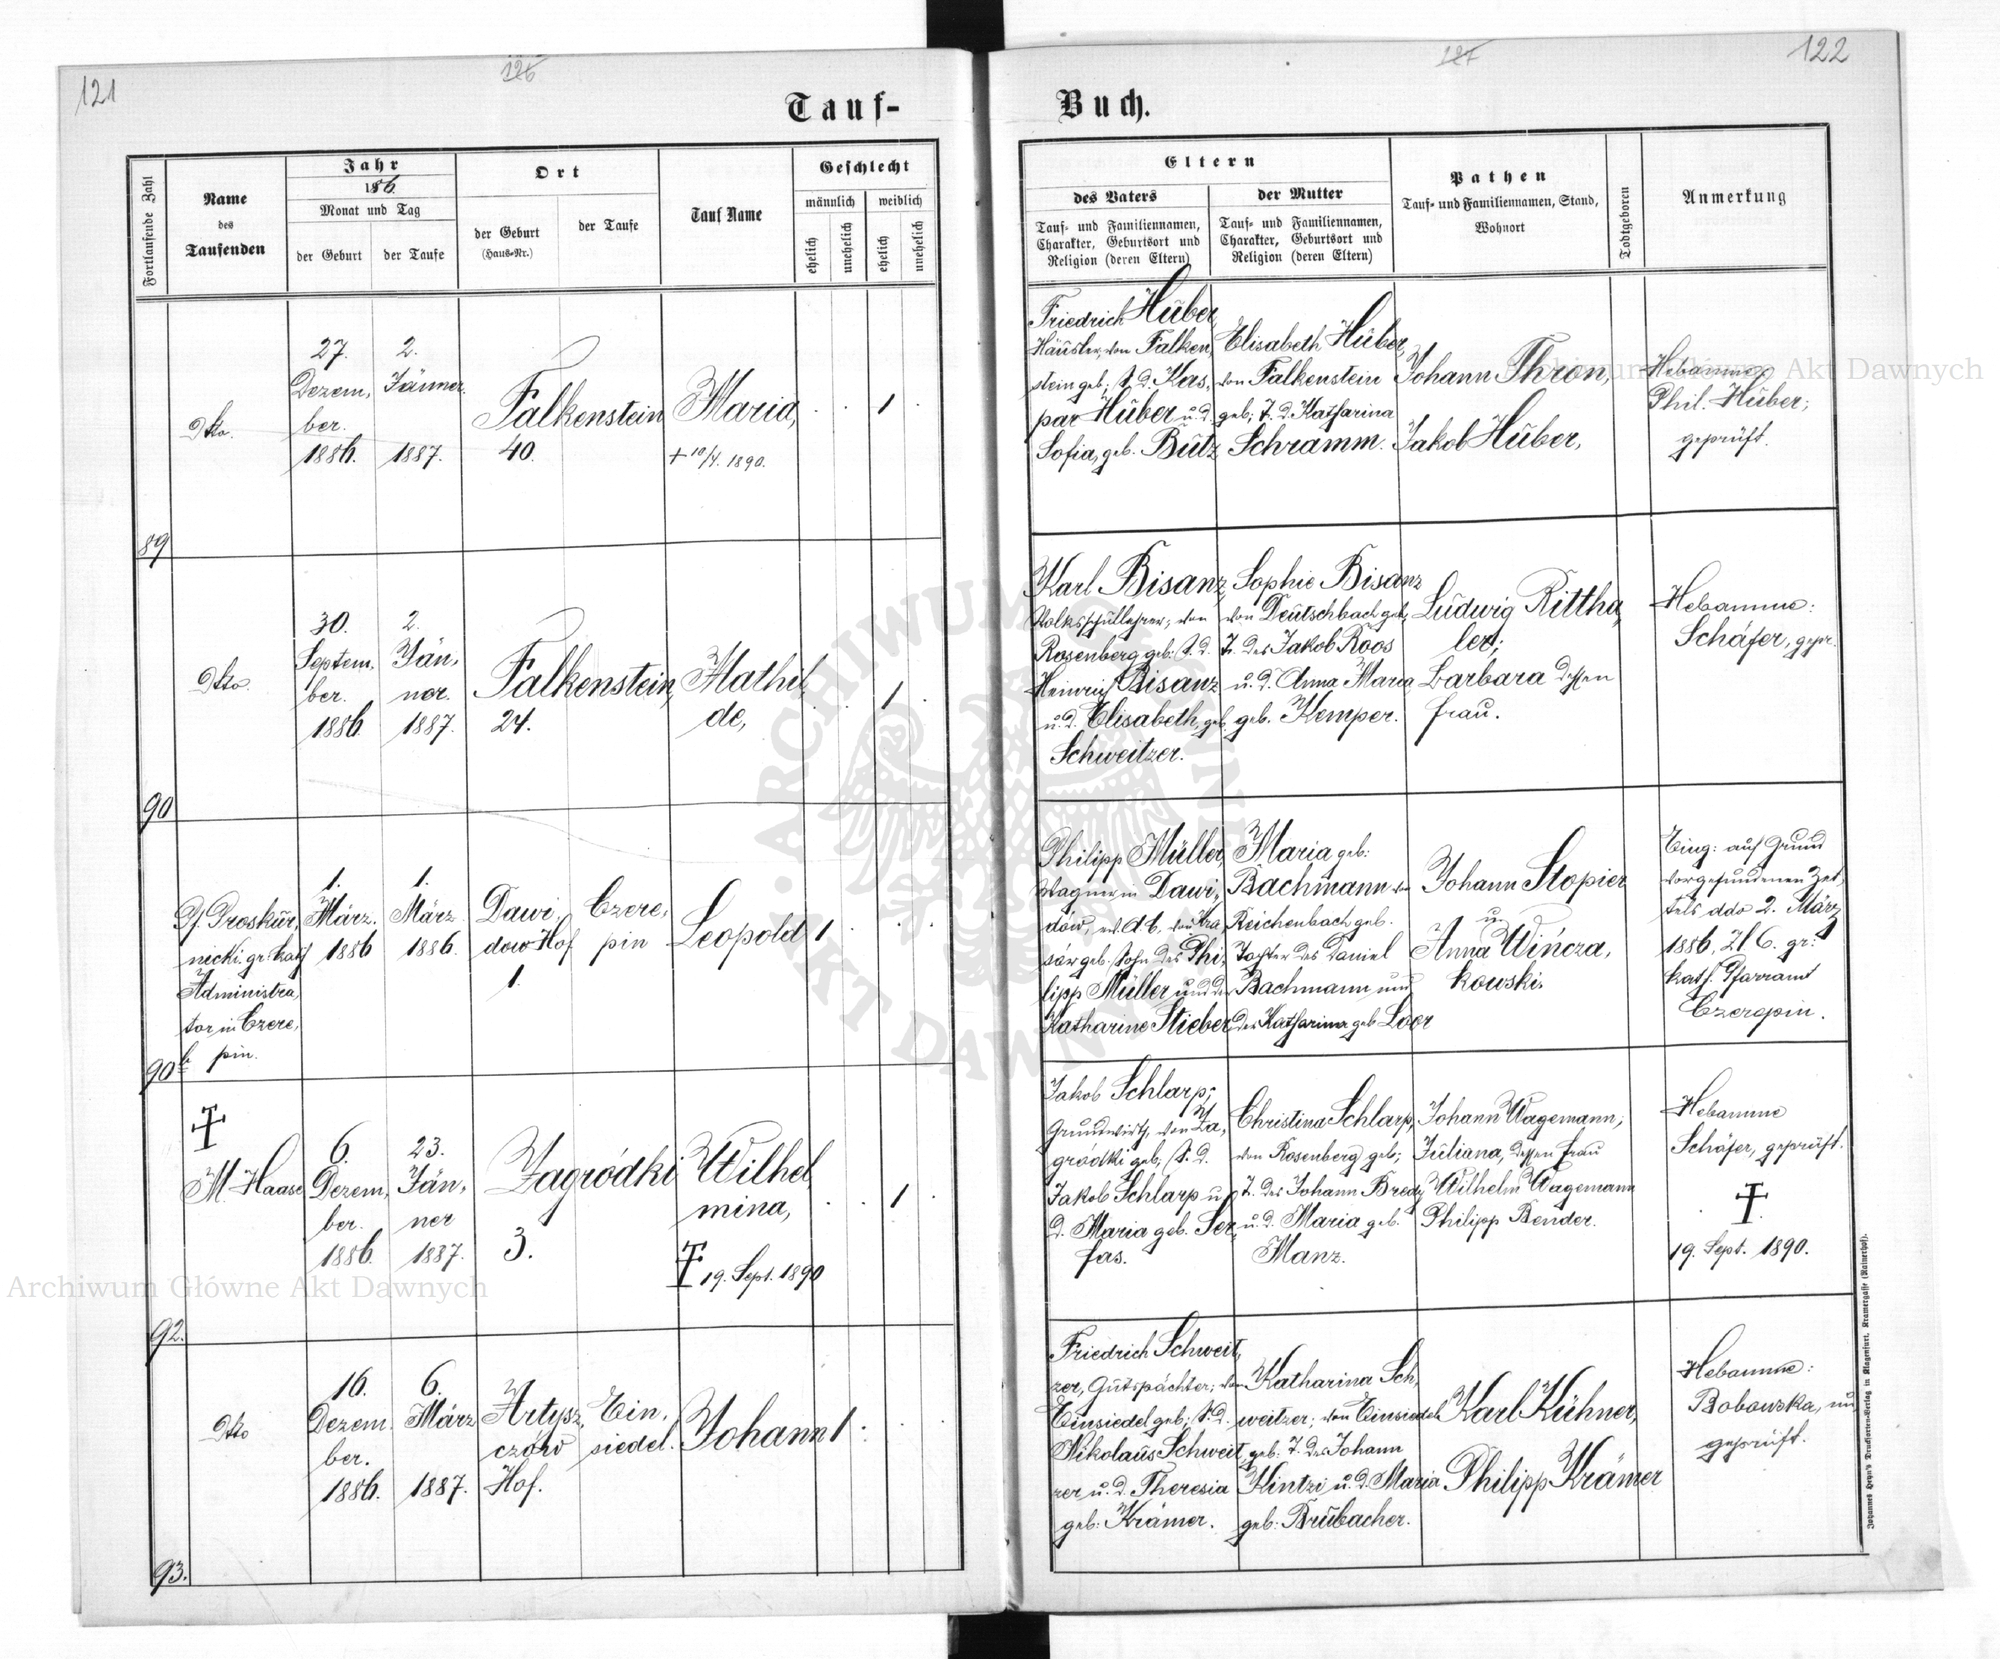 121
126
127
122
Tauf-
Buch.
Fortlaufende Zahl
Name
des
Taufenden
Jahr
1886.
Monat und Tag
der Geburt
der Taufe
Ort
der Geburt
(Haus-Nr.)
der Taufe
Tauf Name
Geschlecht
männlich
weiblich
ehelich
unehelich
ehelich
unehelich
Eltern
des Vaters
Tauf- und Familiennamen,
Charakter, Geburtsort und
Religion (deren Eltern)
der Mutter
Tauf- und Familiennamen,
Charakter, Geburtsort und
Religion (deren Eltern)
Pathen
Tauf- und Familiennamen, Stand,
Wohnort
Todtgeboren
Anmerkung
89
dto.
27.
Dezem,
ber.
1886.
2.
Jänner.
1887.
Falkenstein
40.
Maria,
+ 10/4. 1890.
1
Friedrich Huber,
Häusler, von Falken,
stein geb; S. d. Kas,
par Huber u. d.
Sofia, geb. Butz
Elisabeth Huber,
von Falkenstein
geb; T. d. Katharina
Schramm.
Johann Thron,
Jakob Huber,
Hebamme
Phil. Huber;
geprüft.
90
dto.
30.
Septem.
ber.
1886.
2.
Jän,
ner.
1887.
Falkenstein,
24.
Mathil,
de,
1
Karl Bisanz,
Volksschullehrer, von
Rosenberg geb: S. d.
Heinrich Bisanz
u. d. Elisabeth, geb.
Schweitzer.
Sophie Bisanz
von Deutschbach geb;
T. des Jakob Roos
u. d. Anna Maria
geb. Kemper.
Ludwig Rittha,
ler;
Barbara dessen
Frau.
Hebamme:
Schäfer, gepr.
90 b
Pf. Proskur,
nicki. gr. kath
Administra,
tor in Czere,
pin.
1.
März.
1886
1.
März
1886.
Dawi,
dow Hof
1.
Czere,
pin
Leopold
1
Philipp Müller,
Wagner in Dawi,
dów,
geb. Sohn des Phi,
lipp Müller und der
Katharine Stieber
Maria geb:
Bachmann
Reichenbach geb.
Tochter des Daniel
Bachmann und
der Katharina geb Loor
Johann Stopier
u.
Anna Wińcza,
kowski.
Eing: auf Grund
vorgefundenen Zet,
tels ddo 2. März
1886, Zl 6. gr:
kath. Pfarramt
Czerepin.
92.
M. Haase
6.
Dezem,
ber.
1886.
23.
Jän,
ner
1887.
Zagródki
3.
Wilhel,
mina,
19. Sept. 1890
1
Jakob Schlarp;
Grundwirth, von Za,
grodki geb; S. d.
Jakob Schlarp u.
d. Maria geb. Ser,
fas.
Christina Schlarp,
von Rosenberg geb;
T. des Johann Bredy
u. d. Maria geb.
Manz.
Johann Wagemann;
Juliana, dessen Frau
Wilhelm Wagemann
Philipp Bender.
Hebamme
Schäfer, geprüft.
19. Sept. 1890.
93.
dto
16.
Dezem.
ber.
1886.
6.
März
1887.
Artysz,
czów
Hof.
Ein,
siedel.
Johann
1
Friedrich Schweit,
zer, Gutspächter; von
Einsiedel geb; S. d.
Nikolaus Schweit,
zer u. d. Theresia
geb: Krämer.
Katharina Sch,
weitzer; von Einsiedel
geb: T. des Johann
Kintzi u. d. Maria
geb: Brubacher.
Karl Kühner,
Philipp Krämer
Hebamme:
Bobowska, un,
geprüft.
Johannes Heyn's Drucksorten-Verlag in Klagenfurt, Kramergasse (Rainerhof).
Archiwum Główne Akt Dawnych
Archiwum Główne Akt Dawnych